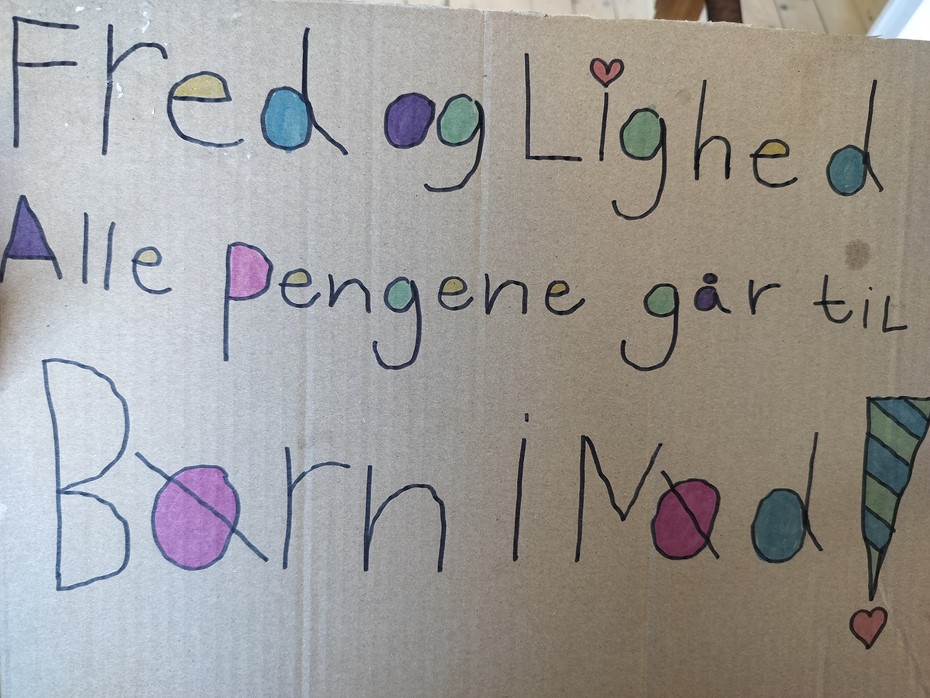 Fred og Lighed
Alle pengene går til
Børn i Nød!